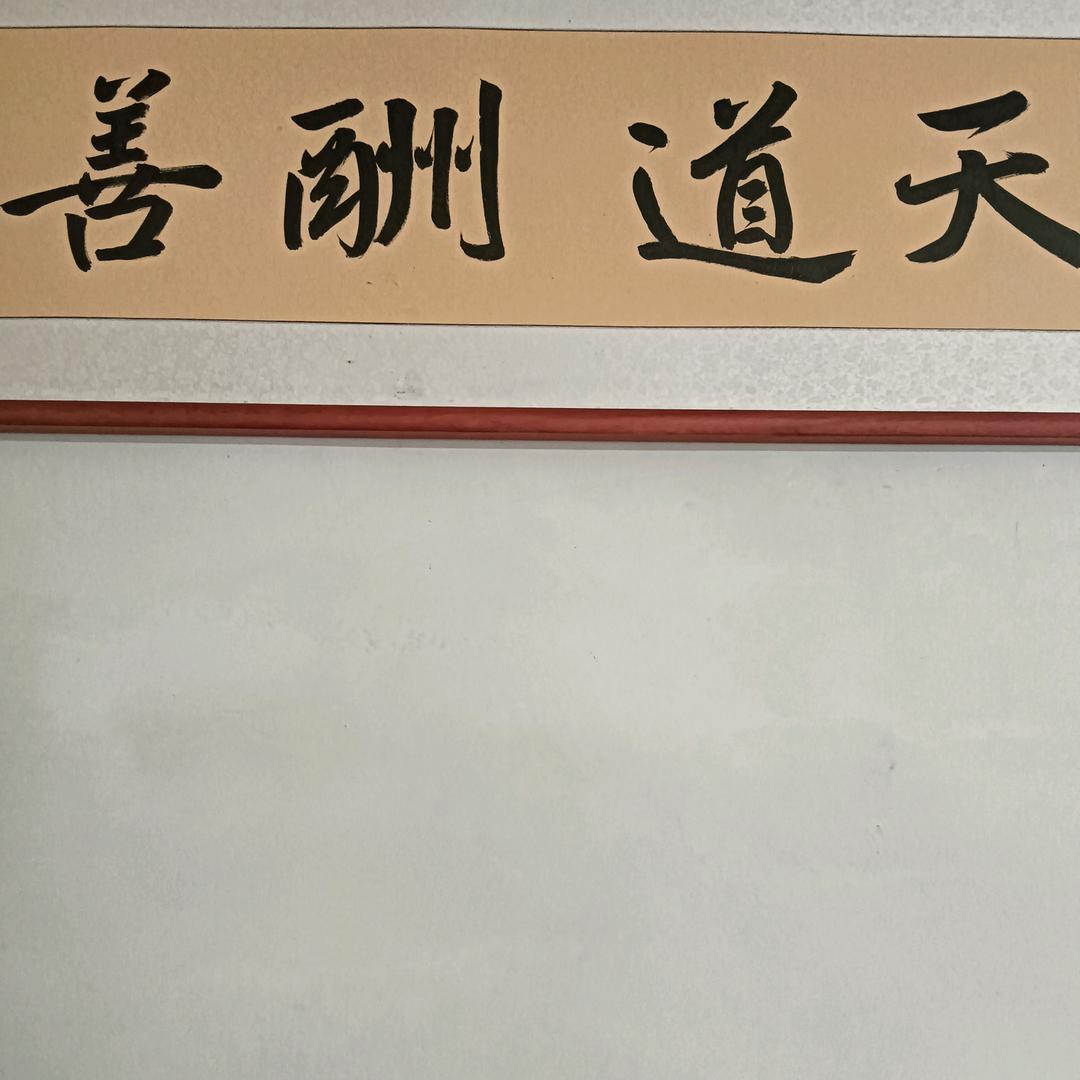 天道酬善